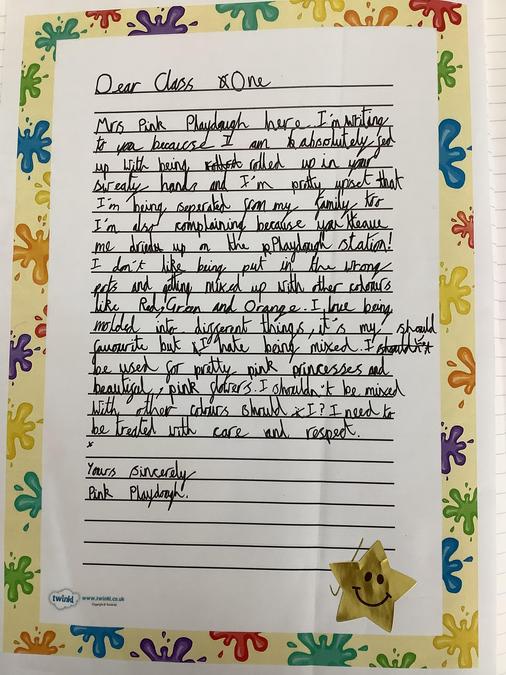 Dear Class One
Mrs Pink Playdough here. I'm writing
to you because I am absolutely fed
up with being rolled up in your
sweaty hands and I'm pretty upset that
I'm being seperated from my family too
I'm also complaining because you leave
me dried up on the Playdough station!
I don't like being put in the wrong
pots and getting mixed up with other colours
like Red, Green and Orange. I love being
molded into different things, it's my
favourite but I hate being mixed. I should
be used for pretty pink princesses and
beautiful, pink flowers. I shouldn't be mixed
with other colours should I? I need to
be treated with care and respect.
Yours sincerely
Pink Playdough.
twinkl www.twinkl.co.uk